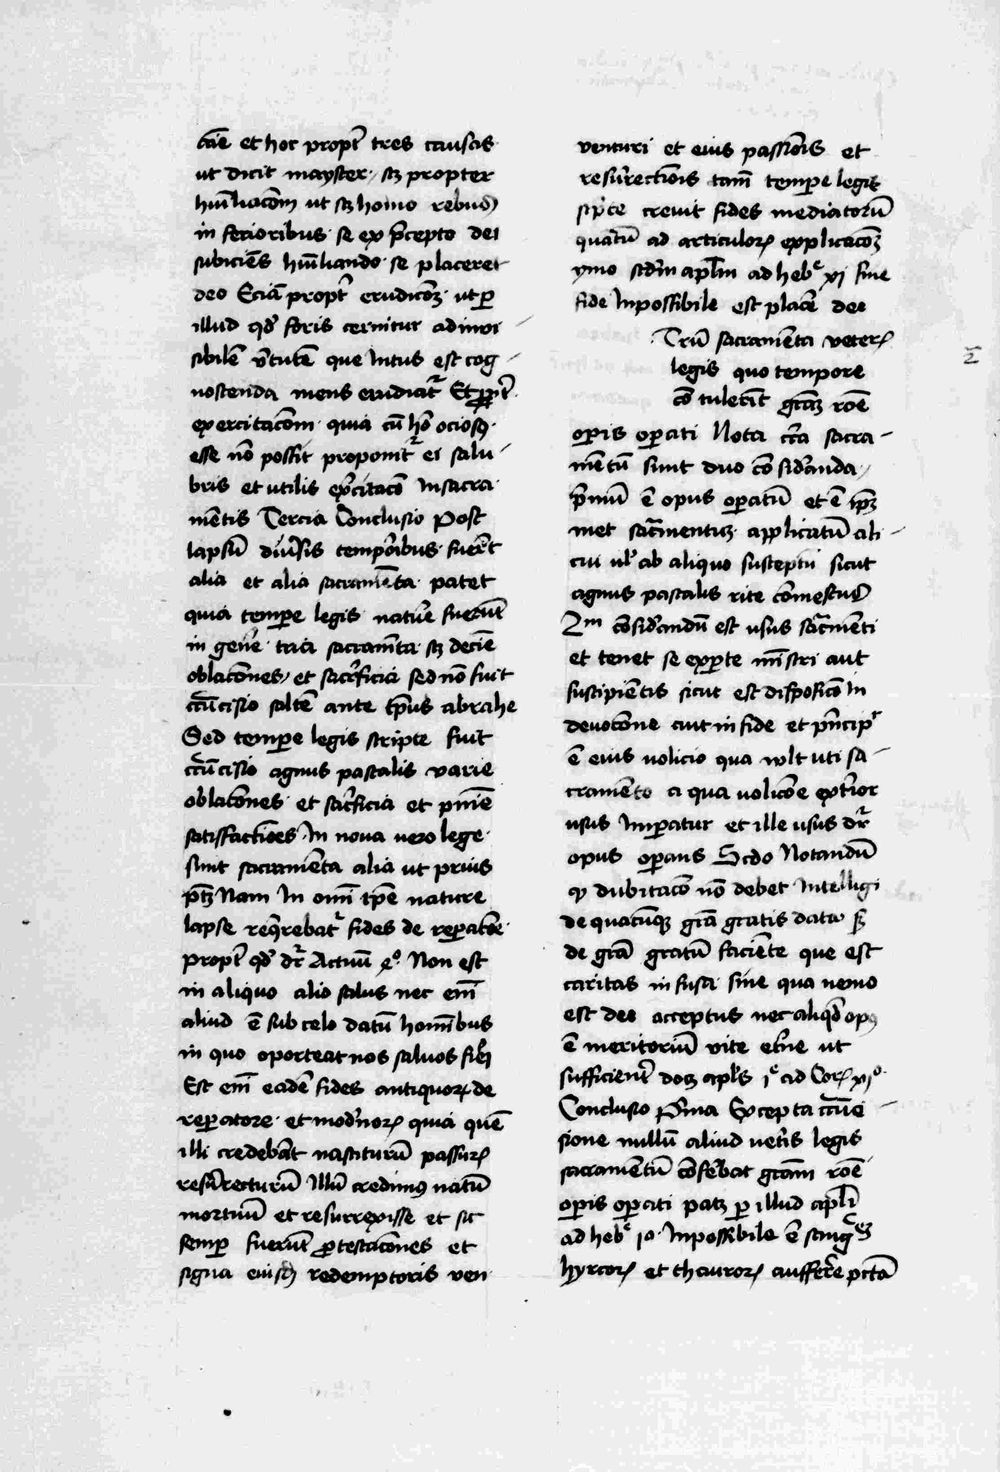 et hoc propt̄ tres causas
ut dicit mayster sꝫ propter
hūiliacōm ut sꝫ homo rebus
in ferioribus se ex p̄cepto dei
subiciēs hūiliando se placeret
deo Eciā propt̄ erudicōꝫ ut ꝑ
illud qd̓ foris cernitur ad inui
sibilē v̓tutē que Intus est cog
noscenda mens erudiat᷑ Et ꝓpt̄
exercitacōm quia cū hō ociosꝰ
esse nō possit proponit᷑ ei salu
bris et utilis exc̓itacō In sacra
mētis Tercia Conclusio Post
lapsū diu̓sis temporibus fuer̄t
alia et alia sacramēta patet
quia tempe legis natur̄e fuerūt
in gen̓e tria sacramēta sꝫ decīe
oblacōnes et sacrificia sed nō fuit
circūcisio saltē ante tp̄us abrahe
Sed tempe legis scripte fuit
circūcisio agnus pascalis varie
oblacōnes et sacrificia et pnīe
satisfactiōes In nova vero lege
sunt sacramēta alia ut prius
ptꝫ Nam In omī tp̄e nature
lapse req̓rebat᷑ fides de reꝑacōe
propt̄ qd̓ dr̄ Actuū 4º Non est
in aliquo alio salus nec em̄
aliud ē sub celo datū homībus
in quo oporteat nos salvos fieri
Est em̄ eadē fides antiquoꝝ de
reꝑatore et mod̓noꝝ quia quē
illi credebāt nasciturū passuꝝ
resurrecturū Illū credimꝰ natū
mortuū et resurrexisse et sic
semꝑ fuerūt ꝓtestacōnes et
signa eiusdē redemptoris ven
venturi et eius passiōis et
resurrectiōis tam̄ tempe legis
sc̓pte crevit fides mediatorū
quatū ad articuloꝝ explicacōꝫ
ymo scd̄m apl̄m ad hebͤ xi sine
fide Impossibile est placē deo
Trū sacramēta veteꝝ
legis quo tempore
cō tulerīt gr̄aꝫ rōe
2
opis opati Nota circa sacra
mētū sunt duo cō sid̓anda
p̓mū ē opus opatū et ē ip̄ꝫ
met sacr̄mentuꝫ applicatū ali
cui ul̓ ab aliquo susceptū sicut
agnus pascalis rite cōmestus
2m cōsid̓andū est usus sacr̄menti
et tenet se exꝑte mīstri aut
suscipiētis sicut est disposicō In
devocōne aut in fide et pn̄cipr̄
ē eius volicio qua vult uti sa
cramēto a qua volicōe ext̓ior
usus Imꝑatur et ille usus dr̄
opus opans Scd̓o Notandū
qꝫ dubitacō nō debet Intelligi
de quacūqꝫ gr̄a gratis data sꝫ
de gr̄a gratū faciēte que est
caritas in fusa sine qua nemo
est deo acceptus nec aliqd̓ opꝰ
ē meritoriū vite et̓ne ut
sufficient̄ docꝫ apl̓s 1ͤ ad Coꝝ xiº
Conclusio p̓ma Excepta circūci
sione nullū aliud vet̓is legis
sacramētū cōferebat gr̄am rōe
opis opati patꝫ ꝑ illud apl̄i
ad hebͤ 10 Impossibile ē sangͤꝫ
hyrcoꝝ et thauroꝝ aufferre pctā